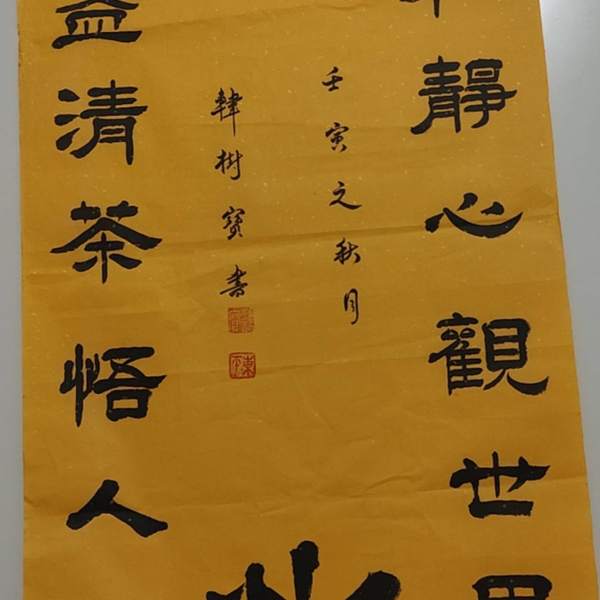 靜心觀世界
壬寅之秋月
韓樹寶書
益清茶悟人